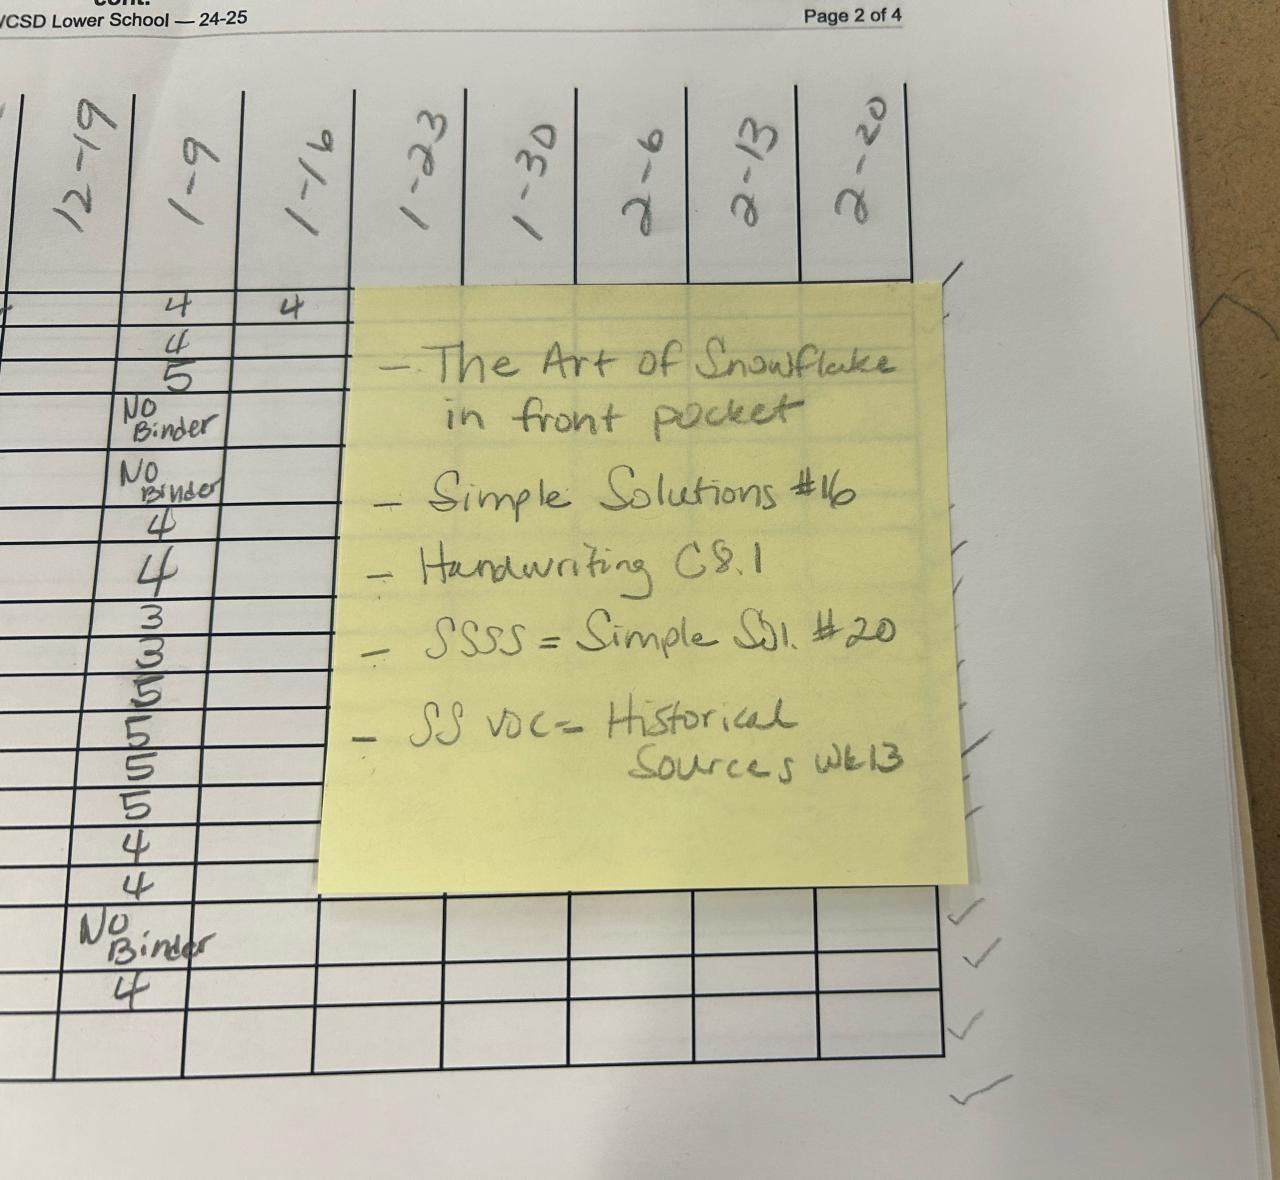 cont.
/CSD Lower School — 24-25
Page 2 of 4
12-19
1-9
1-16
1-23
1-30
2-6
2-13
2-20
4 4
4
5
No
Binder
No
Binder
4
4
3
3
5
5
5
5
4
4
No
Binder
4
- The Art of Snowflake
in front pocket
- Simple Solutions #16
- Handwriting C8.1
- SSSS = Simple Sol. #20
- SS voc = Historical
Sources Wk13